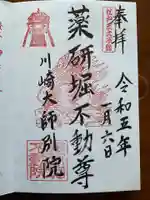 奉拝
令和五年
一月六日
薬研堀不動尊
川崎大師別院